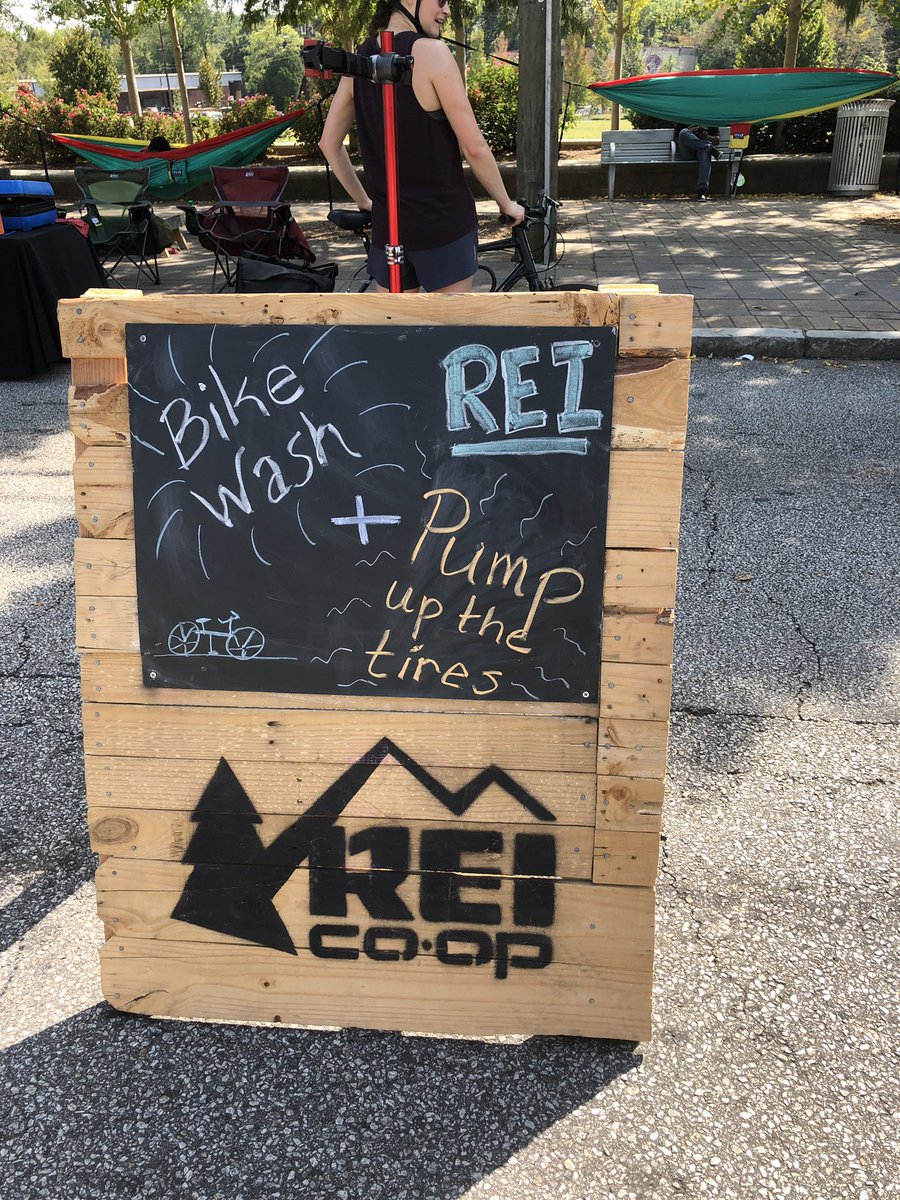 Bike
Wash
REI
+
Pump
up the
tires
REI
co·op